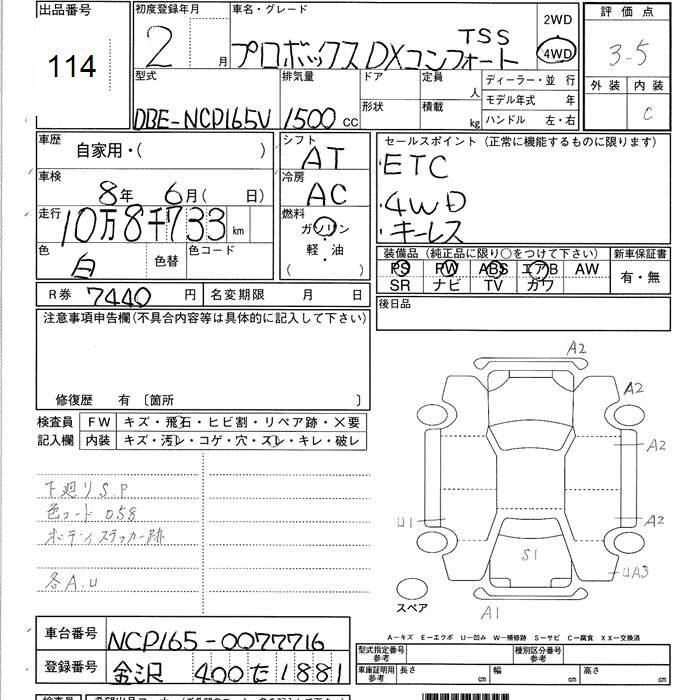 出品番号
114
初度登録年月
2 月
車名・グレード
TSS
プロボックス DXコンフォート
2WD
4WD
評価点
3.5
外装 内装
C
型式
DBE-NCP165V
排気量
1500 cc
ドア
形状
定員 人
積載 kg
ディーラー・並 行
モデル年式 年
ハンドル 左・右
車歴
自家用・( )
シフト
AT
車検
8年 6月( 日)
冷房
AC
走行
10万8千733 km
燃料
ガソリン
・
軽・油
( )
色
白
色替
色コード
R券 7440 円
名変期限 月 日
セールスポイント (正常に機能するものに限ります)
・ETC
・4WD
・キーレス
装備品 (純正品に限り○をつけて下さい)
PS PW ABS エアB AW
SR ナビ TV カワ
新車保証書
有・無
後日品
注意事項申告欄(不具合内容等は具体的に記入して下さい)
修復歴 有 〔箇所 〕
検査員
記入欄
FW キズ・飛石・ヒビ割・リペア跡・×要
内装 キズ・汚レ・コゲ・穴・スレ・キレ・破レ
下廻りS.P
色コード 058
ボディステッカー跡
各A.U
A2
A2
A2
A2
U1
S1
UA3
A1
スペア
A-キズ E-エクボ U-凹み W-補修跡 S-サビ C-腐食 XX-交換済
車台番号
NCP165-0077716
登録番号
金沢 400 せ 1881
型式指定番号
参考
種別区分番号
参考
車庫証明用
参考
長さ cm
幅 cm
高さ cm